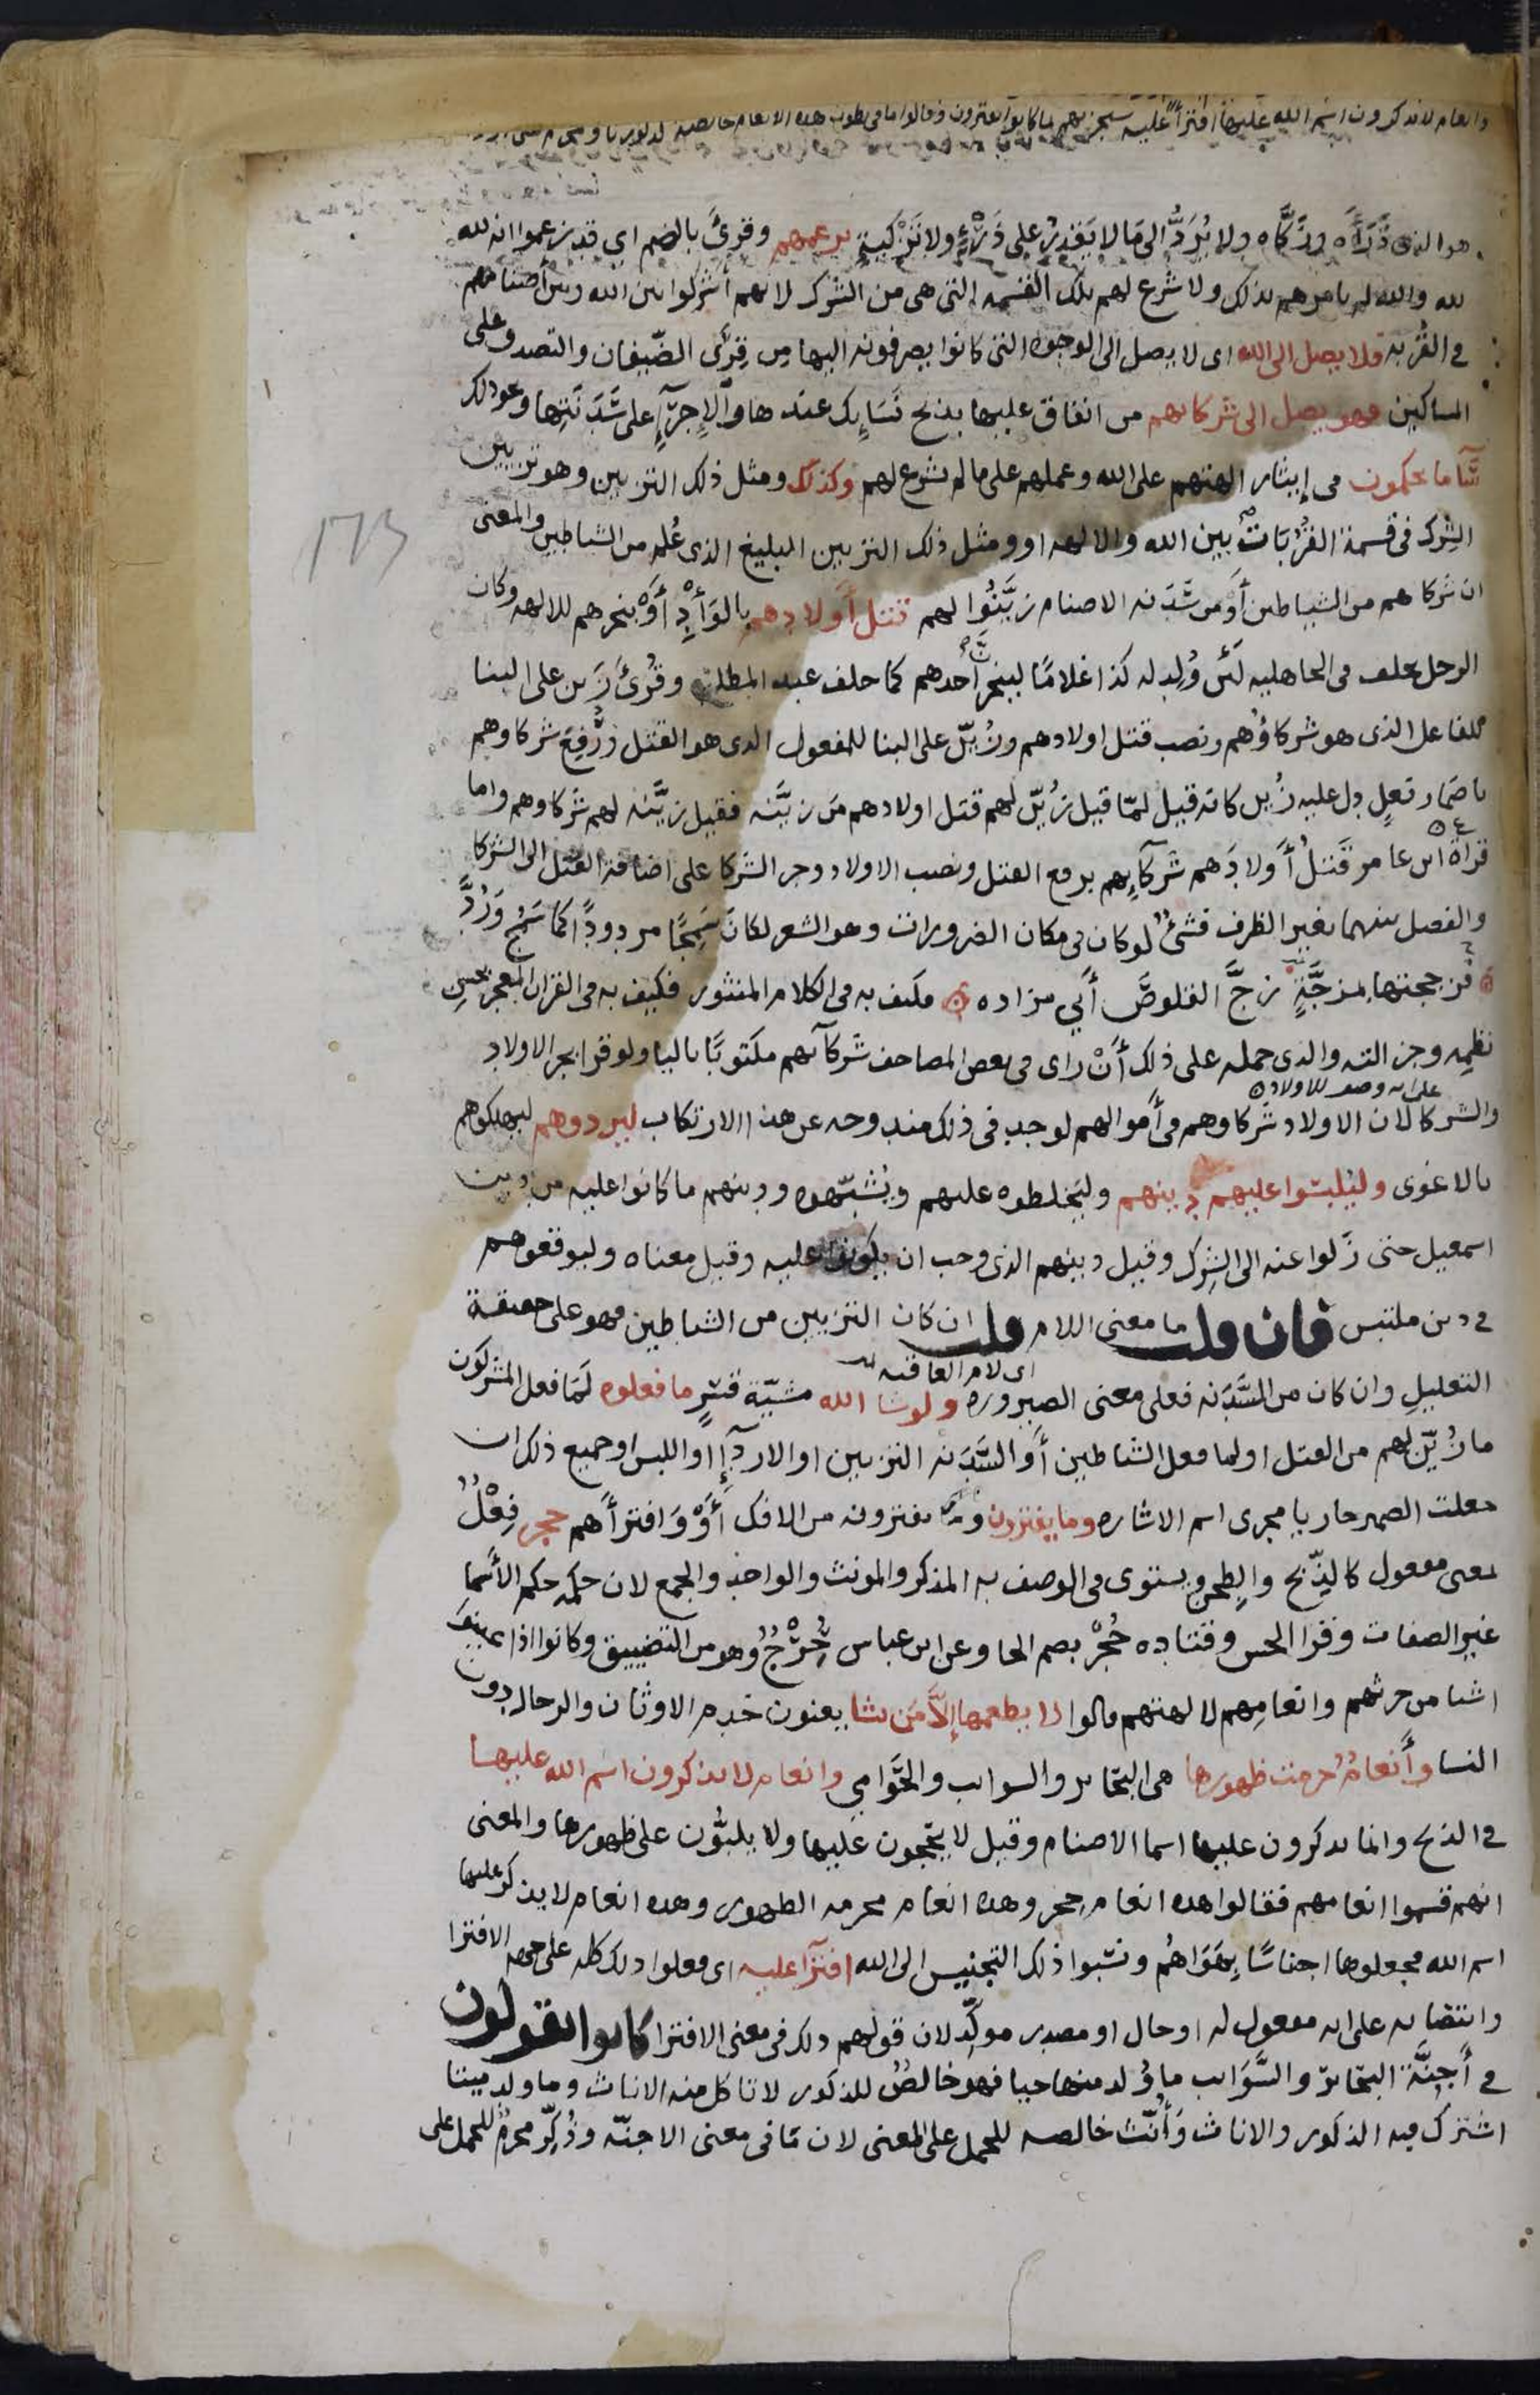 وانعام لا يذكرون اسم الله عليها افتراً عليه سيجزيهم بما كانوا يفترون وقالوا ما فى بطون هذه الانعام خالصة لذكورنا ومحرم على
هو الذى ذَرَأَه وزَكَّاه ولا يُرَدُّ الى مَا لا يَقدِرُ على ذَرْءٍ ولا تَزْكيةٍ بزعمهم وقرئ بالضم اى قد زعموا انه لله
لله والله لم يامرهم بذلك ولا شرع لهم تلك القسمه التى هى من الشرك لانهم أشركوا بين الله وبين أصنامهم
فى القُربه فلا يصل الى الله اى لا يصل الى الوجوه التى كانوا يصرفونه اليها من قِرَى الضّيفان والتصدق على
المساكين فهو يصل الى شركائهم من انفاق عليها بذبح نَسَايِك عندها والاِجرَآءِ على سَدَنَتِها ونحو ذلك
سَآ ما يحكمون فى إيثار الهتهم على الله وعملهم على ما لم يشرع لهم وكذلك ومثل ذلك التزيين وهو تزيين
الشِرك فى قسمة القُرُبَات بين الله والالهه او ومثل ذلك التزيين البليغ الذى عُلم من الشياطين والمعنى
ان شركاهم من الشياطين أَو من سَدَنه الاصنام زيَّنُوا لهم قتل أولادهم بالوَأدِ أَوْ بنحرهم للالهه وكان
الرجل يحلف فى الجاهليه لَئن وُلِد له كذا غلامًا لينحرنَّ أحدهم كما حلف عبد المطلب وقُرئَ زَين على البنا
للفاعل الذى هو شركاؤُهم ونصب قتل اولادهم وزُيّن على البنا للمفعول الذى هو القتل ورُفِعَ شركاوهم
باضمار فعلٍ دل عليه زُين كانه قيل لمّا قيل زُيّن لهم قتل اولادهم مَن زيَّنه فقيل زيَّنه لهم شركاوهم واما
قراة ابن عامر قَتلُ أَولادَهم شركآيِهم برفع القتل ونصب الاولاد وجر الشركا على اضافة القتل الى الشركا
والفصل بينهما بغير الظرف فشئٌ لو كان فى مكان الضرورات وهو الشعر لكان سَمِجًا مردودًا كما سَمُجَ وَرُدَّ
فزججتها بمزجَّةٍ زجَّ القلوصَ أبي مزاده فكيف به فى الكلام المنثور فكيف به فى القران المعجز بحسن
نظمِه وجزالته والذى حمله على ذلك أَنْ راى فى بعض المصاحف شركآئهم مكتوبًا باليا ولو قرا بجر الاولاد
على انه وصف للاولاد
والشركا لان الاولاد شركاوهم فى أَموالهم لوجد فى ذلك مندوحه عن هذا الارتكاب ليردوهم ليهلكوهم
بالاغوى وليلبسوا عليهم دينهم وليخلطوه عليهم ويُشبّهوه ودينهم ما كانوا عليه من دين
اسمعيل حتى زَلوا عنه الى الشِرك وقيل دينهم الذى وجب ان يكونوا عليه وقيل معناه وليوقعوهم
فى دين ملتبس فان قلت ما معنى اللام قلت ان كان التزيين من الشياطين فهو على حقيقة
اى لام العاقبه
التعليل وان كان من السَّدَنه فعلى معنى الصيروره ولو شا الله مشيّة قسرٍ ما فعلوه لَمَا فعل المشركون
ما زُيّن لهم من القتل او لما فعل الشياطين أَو السَّدَنه التزيين او الاردآء او اللبس او جميع ذلك ان
جعلت الضمير جاريا مجرى اسم الاشاره وما يفترون وما يفترونه من الافك أَوْ وَافترأَهم حجر فِعْلٌ
بمعنى مفعول كالذِّبح والطِحن ويستوى فى الوصف به المذكر والمونث والواحد والجمع لان حكمه حكم الأَسما
غير الصفات وقرا الحسن وقتاده حُجْرٌ بضم الحا وعن ابن عباس حِرْجٌ وهو من التضييق وكانوا اذا عينوا
اشيا من حرثهم وانعامِهم لالهتهم قالوا لا يطعمها إلاَّ مَن نشا يعنون خدم الاوثان والرجال دون
النسا وأَنعامٌ حرمت ظهورها هى البحَاير والسوايب والحوَامي وانعام لا يذكرون اسم الله عليها
فى الذبح وانما يذكرون عليها اسما الاصنام وقيل لا يحجون عليها ولا يلبُّون على ظهورها والمعنى
انهم قسموا انعامهم فقالوا هذه انعام حجر وهذه انعام محرمه الظهور وهذه انعام لا يذكر عليها
اسم الله فجعلوها اجناسًا بِهَوَاهُم ونسَبوا ذلك التجنيس الى الله افتراً عليه اى فعلوا ذلك كله على جهه الافترا
وانتصابه على انه مفعول له او حال او مصدر موكِّد لان قولهم ذلك فى معنى الافترا كانوا يقولون
فى أَجِنَّة البحاير والسَّوَايب ما وُلد منها حيا فهو خالصٌ للذكور لا تاكل منه الاناث وما ولد ميتا
اشترك فيه الذكور والاناث وَأُنّث خالصه للحمل على المعنى لان مَا فى معنى الاجنّه وذُكِّر محرمٌ للحمل على